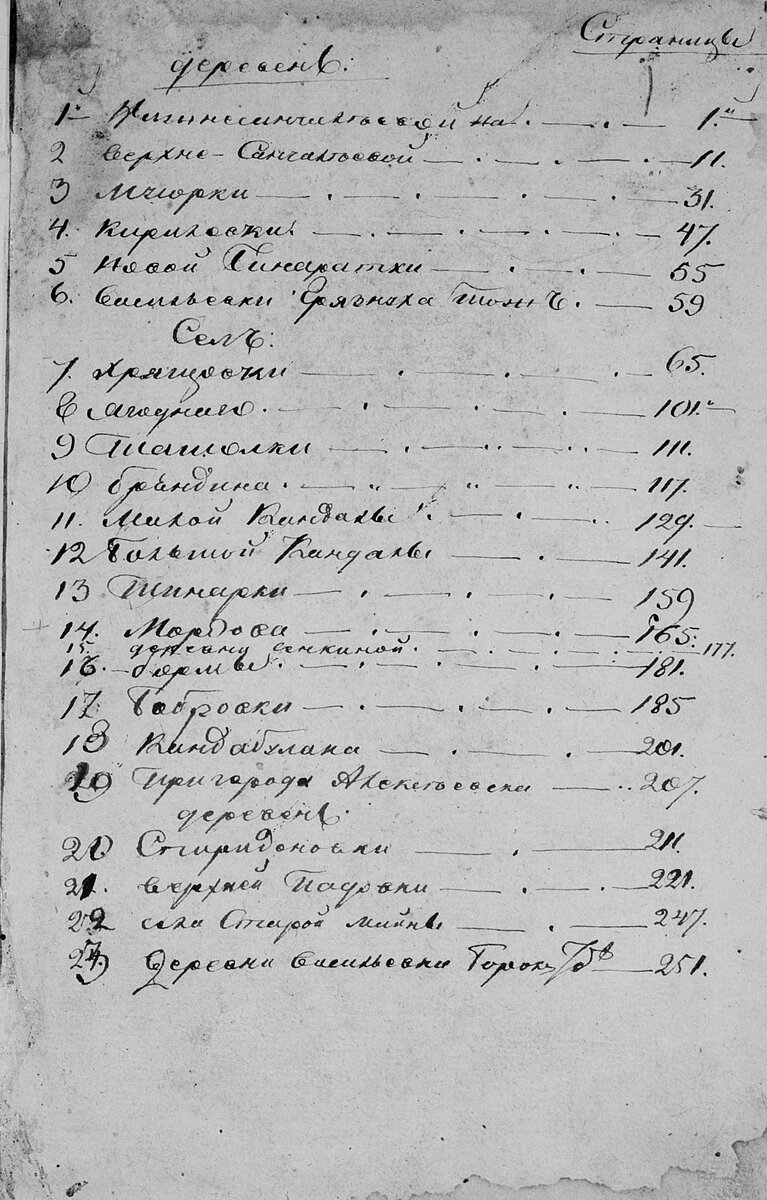 Страницы
деревень:
1. на 1.
2 Верхне-Санчалеевой 11.
3 Мчюрки 31.
4. Кириловки 47.
5 Новой Бинаратки 55
6. Васильевки тожъ. 59
Селъ:
7. Хрящовки 65.
8 Ягодного. 101.
9 Ташолки 111.
10 Брандина. 117.
11. Малой Кандалы. 129.
12 Большой Кандалы 141.
13 Шинарки 159
14. Мордова 165.
15. деревни Сенкиной. 177.
16. Бирлы. 181.
17. Бобровки 185
18 Кандабулака 201.
19 Пригорода Алексеевска 207.
деревень:
20. Спиридоновки 211.
21. Верхней Падовки 221.
22 села Старой Майны 247.
23 Деревни Васильевки 251.